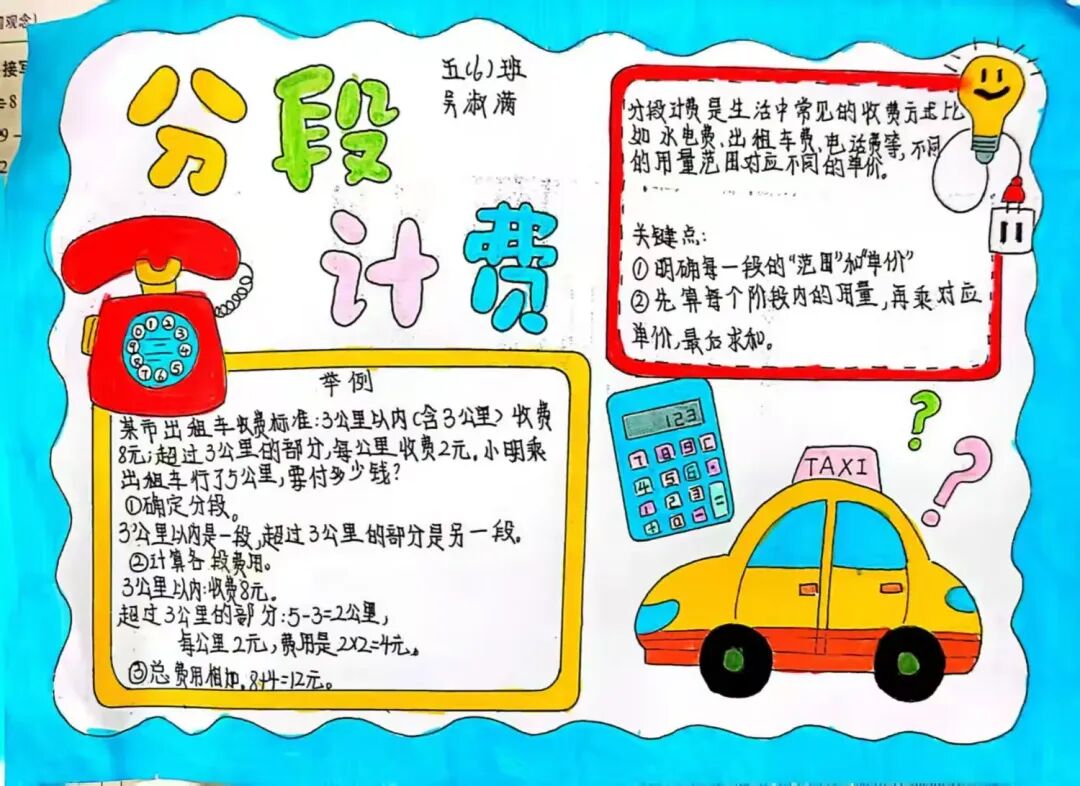 分段
计费
五(6)班
吴淑满
分段计费是生活中常见的收费方式比
如水电费、出租车费、电话费等,不同
的用量范围对应不同的单价。
关键点:
①明确每一段的“范围”和“单价”
②先算每个阶段内的用量,再乘对应
单价,最后求和。
举例
某市出租车收费标准:3公里以内(含3公里)收费
8元;超过3公里的部分,每公里收费2元。小明乘
出租车行了5公里,要付多少钱?
①确定分段。
3公里以内是一段,超过3公里的部分是另一段。
②计算各段费用。
3公里以内:收费8元。
超过3公里的部分:5-3=2公里,
每公里2元,费用是2×2=4元。
③总费用相加.8+4=12元。
123
TAXI
观念)
接写